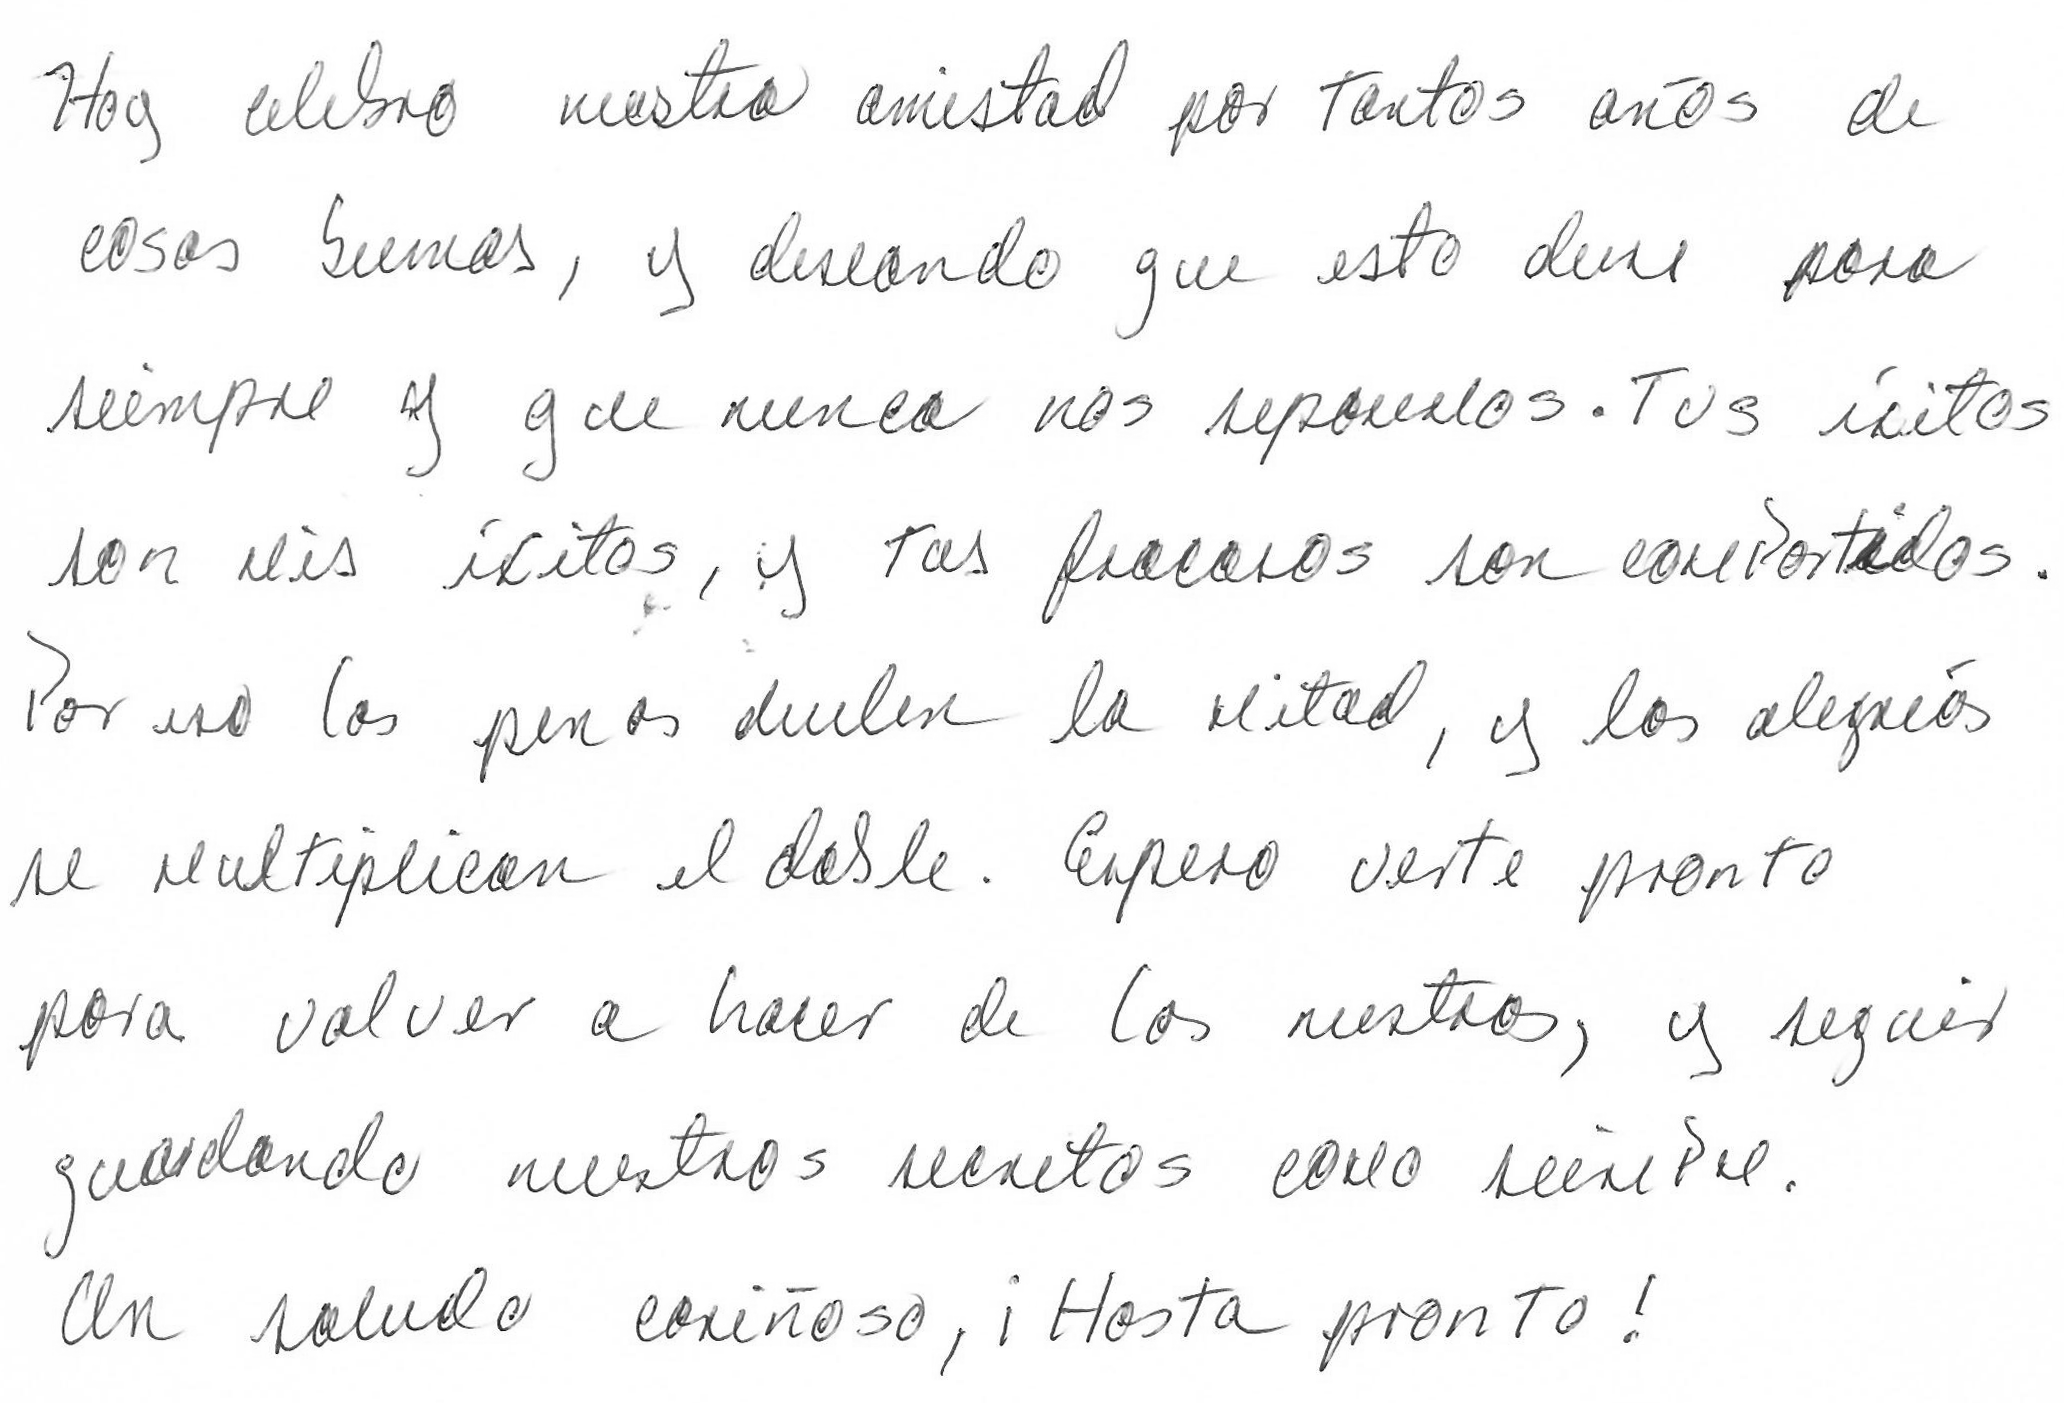 Hoy celebro nuestra amistad por tantos años de
cosas buenas, y deseando que esto dure para
siempre y que nunca nos separemos. Tus éxitos
son mis éxitos, y tus fracasos son compartidos.
Por eso las penas duelen la mitad, y las alegrías
se multiplican el doble. Espero verte pronto
para volver a hacer de las nuestras, y seguir
guardando nuestros secretos como siempre.
Un saludo cariñoso, ¡Hasta pronto!